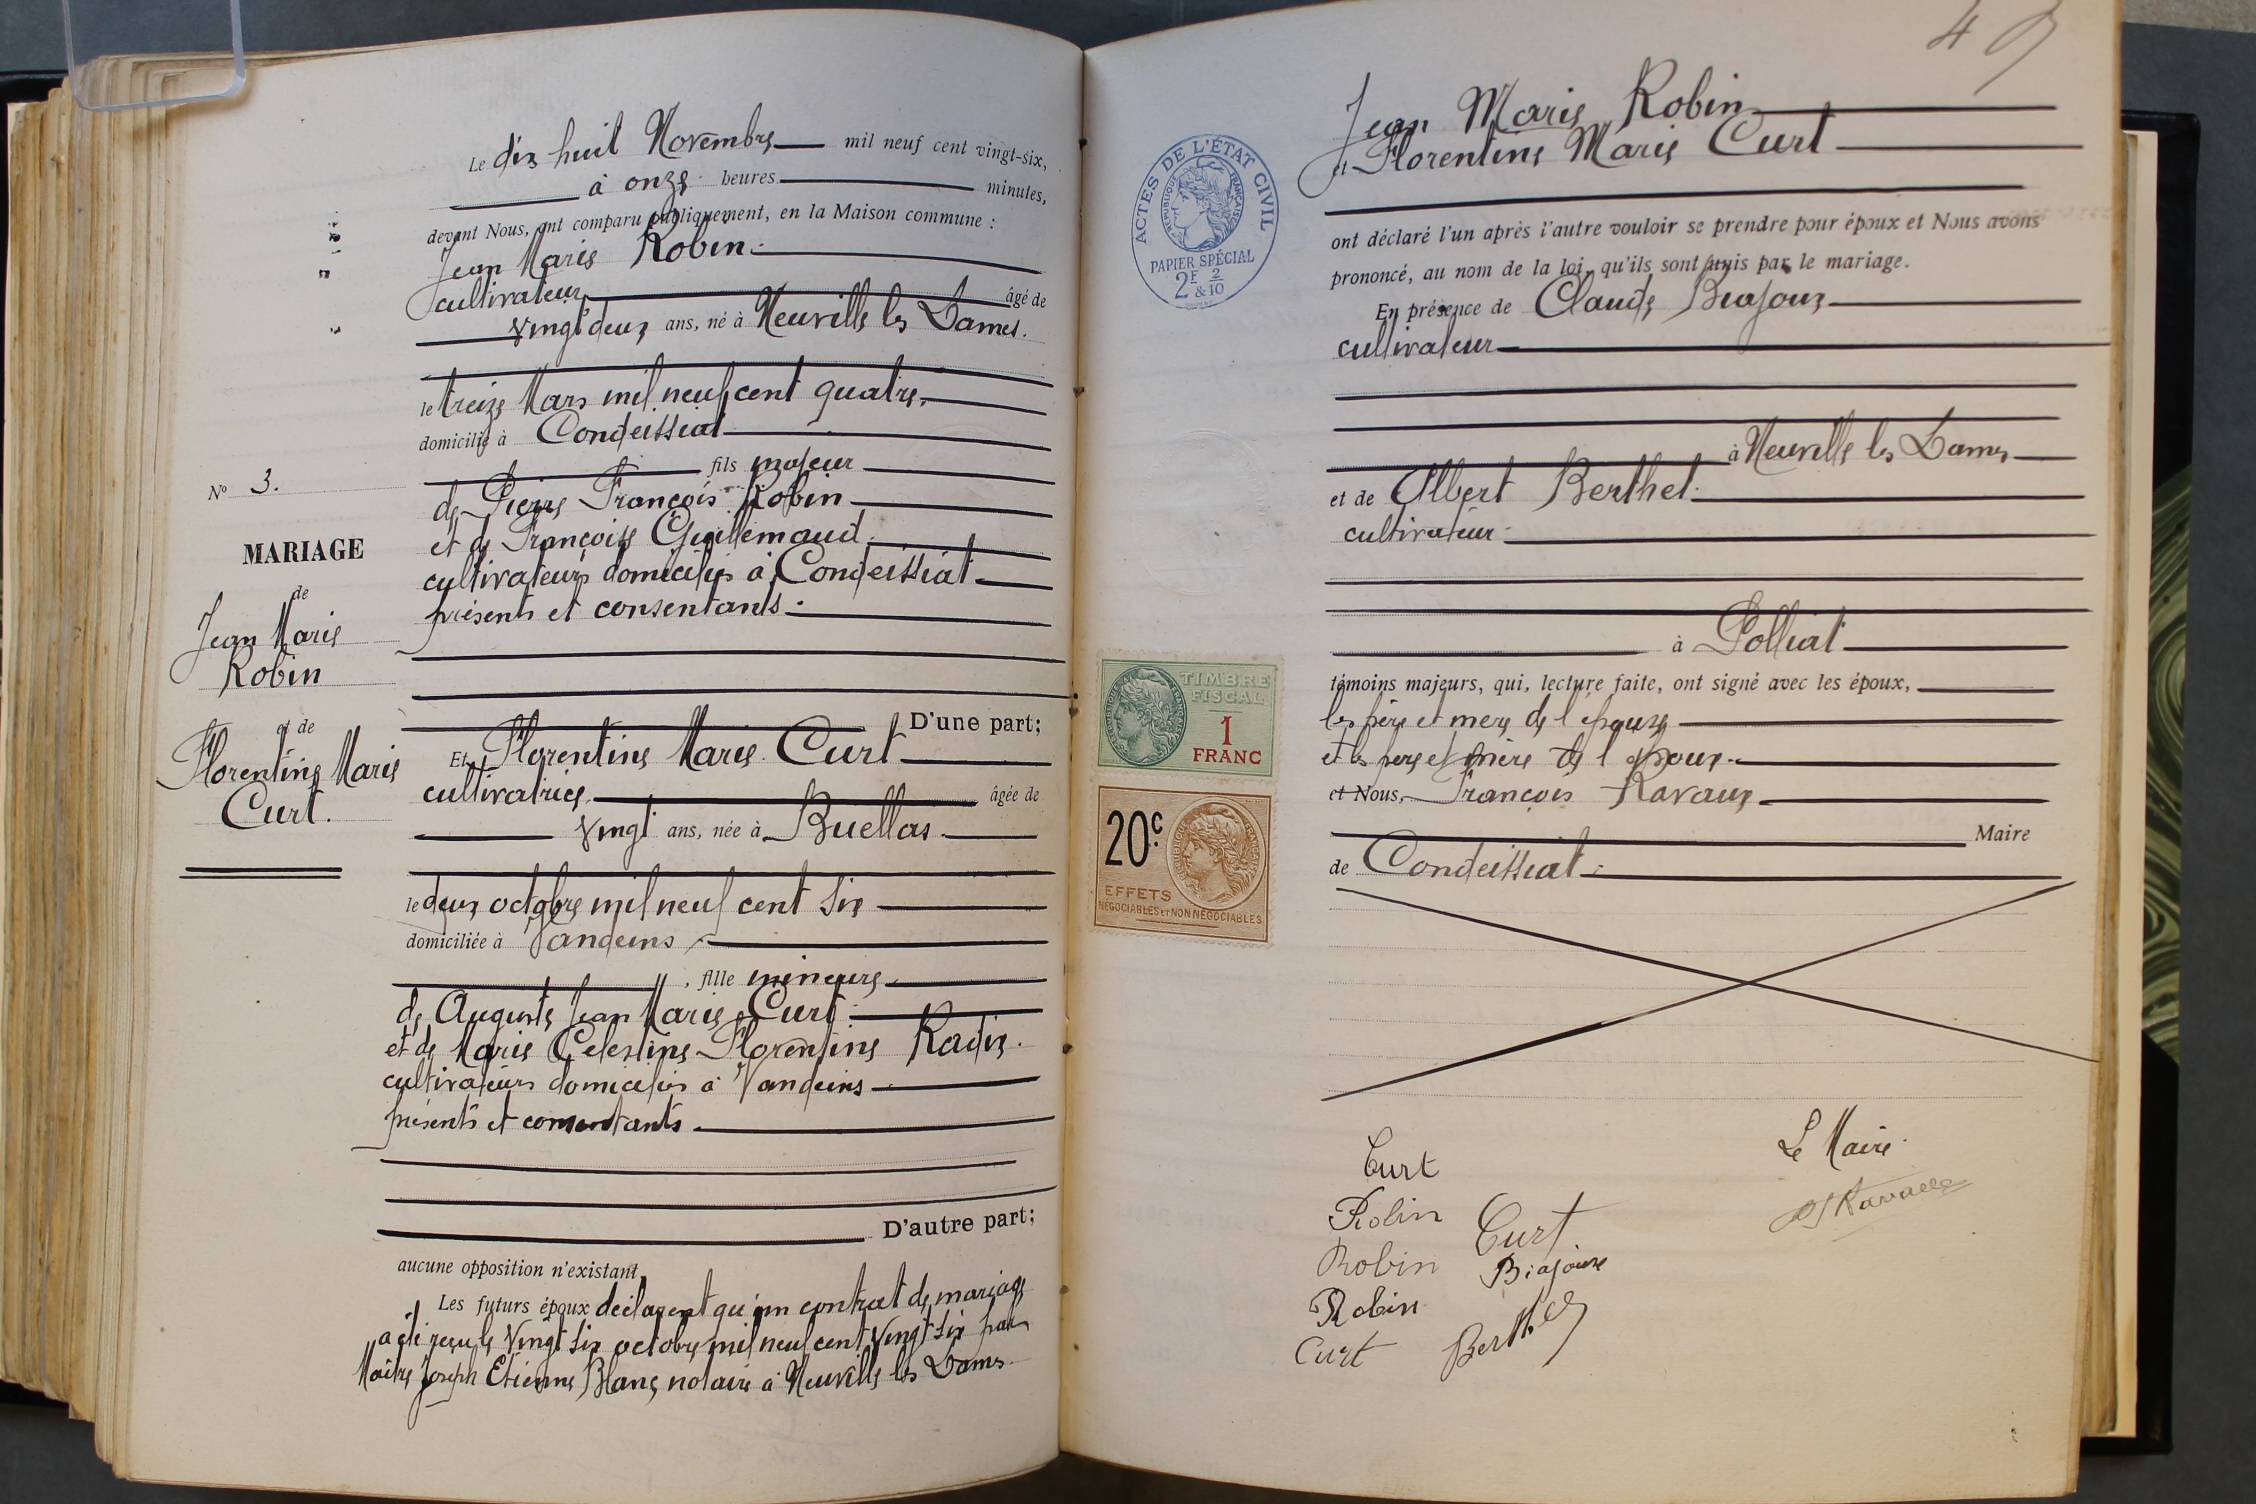 Le dix huit Novembre mil neuf cent vingt-six,
à onze heures minutes,
devant Nous, ont comparu publiquement, en la Maison commune :
Jean Marie Robin
cultivateur âgé de
vingt deux ans, né à Neuville les Dames.
le treize Mars mil neuf cent quatre,
domicilié à Condeissiat
fils majeur
de Pierre François Robin
et de Françoise Guillemaud
cultivateurs domiciliés à Condeissiat
présents et consentants.
D'une part;
Et Florentine Marie Curt
cultivatrice, âgée de
vingt ans, née à Buellas
le deux octobre mil neuf cent six
domiciliée à Vandeins
, fille mineure
de Auguste Jean Marie Curt
et de Marie Celestine Florentine Radix.
cultivateurs domiciliés à Vandeins
présents et consentants.
D'autre part;
aucune opposition n'existant.
Les futurs époux déclarent qu'un contrat de mariage
a été reçu le vingt six octobre mil neuf cent vingt six par
Maître Joseph Etienne Blanc notaire à Neuville les Dames
N° 3.
MARIAGE
de
Jean Marie
Robin
et de
Florentine Marie
Curt.
Jean Marie Robin
et Florentine Marie Curt
ont déclaré l'un après l'autre vouloir se prendre pour époux et Nous avons
prononcé, au nom de la loi, qu'ils sont unis par le mariage.
En présence de Claude Biajoux
cultivateur
à Neuville les Dames
et de Albert Berthet.
cultivateur
à Polliat
témoins majeurs, qui, lecture faite, ont signé avec les époux,
les père et mère de l'épouse
et les père et mère de l'époux
et Nous, François Ravaux
Maire
de Condeissiat
Curt
Robin
Robin
Robin
Curt
Curt
Biajoux
Berthet
Le Maire
Ravaux
ACTES DE L'ÉTAT CIVIL
RÉPUBLIQUE FRANÇAISE
PAPIER SPÉCIAL
2F & 2/10
TIMBRE
FISCAL
1
FRANC
20c
EFFETS
NÉGOCIABLES ET NON NÉGOCIABLES